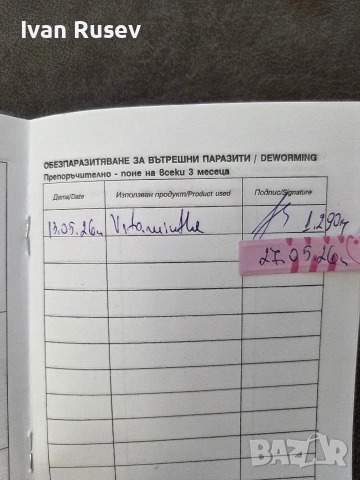 Ivan Rusev
ОБЕЗПАРАЗИТЯВАНЕ ЗА ВЪТРЕШНИ ПАРАЗИТИ / DEWORMING
Препоръчително - поне на всеки 3 месеца
Дата/Date Използван продукт/Product used Подпис/Signature
13.05.26г Vitaminthe 1.290кг
27.05.26г
BAZAR